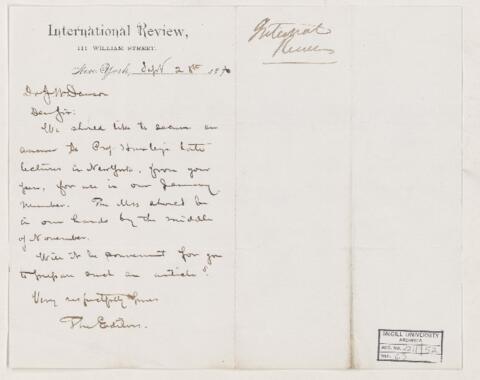 International Review,
111 WILLIAM STREET.
New York, Sept 28th 1876
Dr J W Dawson
Dear Sir:
We should like to secure an
answer to Prof Huxley's late
lectures in New York, from your
pen, for use in our January
number. The Mss should be
in our hands by the middle
of November.
Will it be convenient for you
to prepare such an article?
Very respectfully yours
The Editors.
Internat
Review
McGILL UNIVERSITY
ARCHIVES
ACC. NO.
REF.